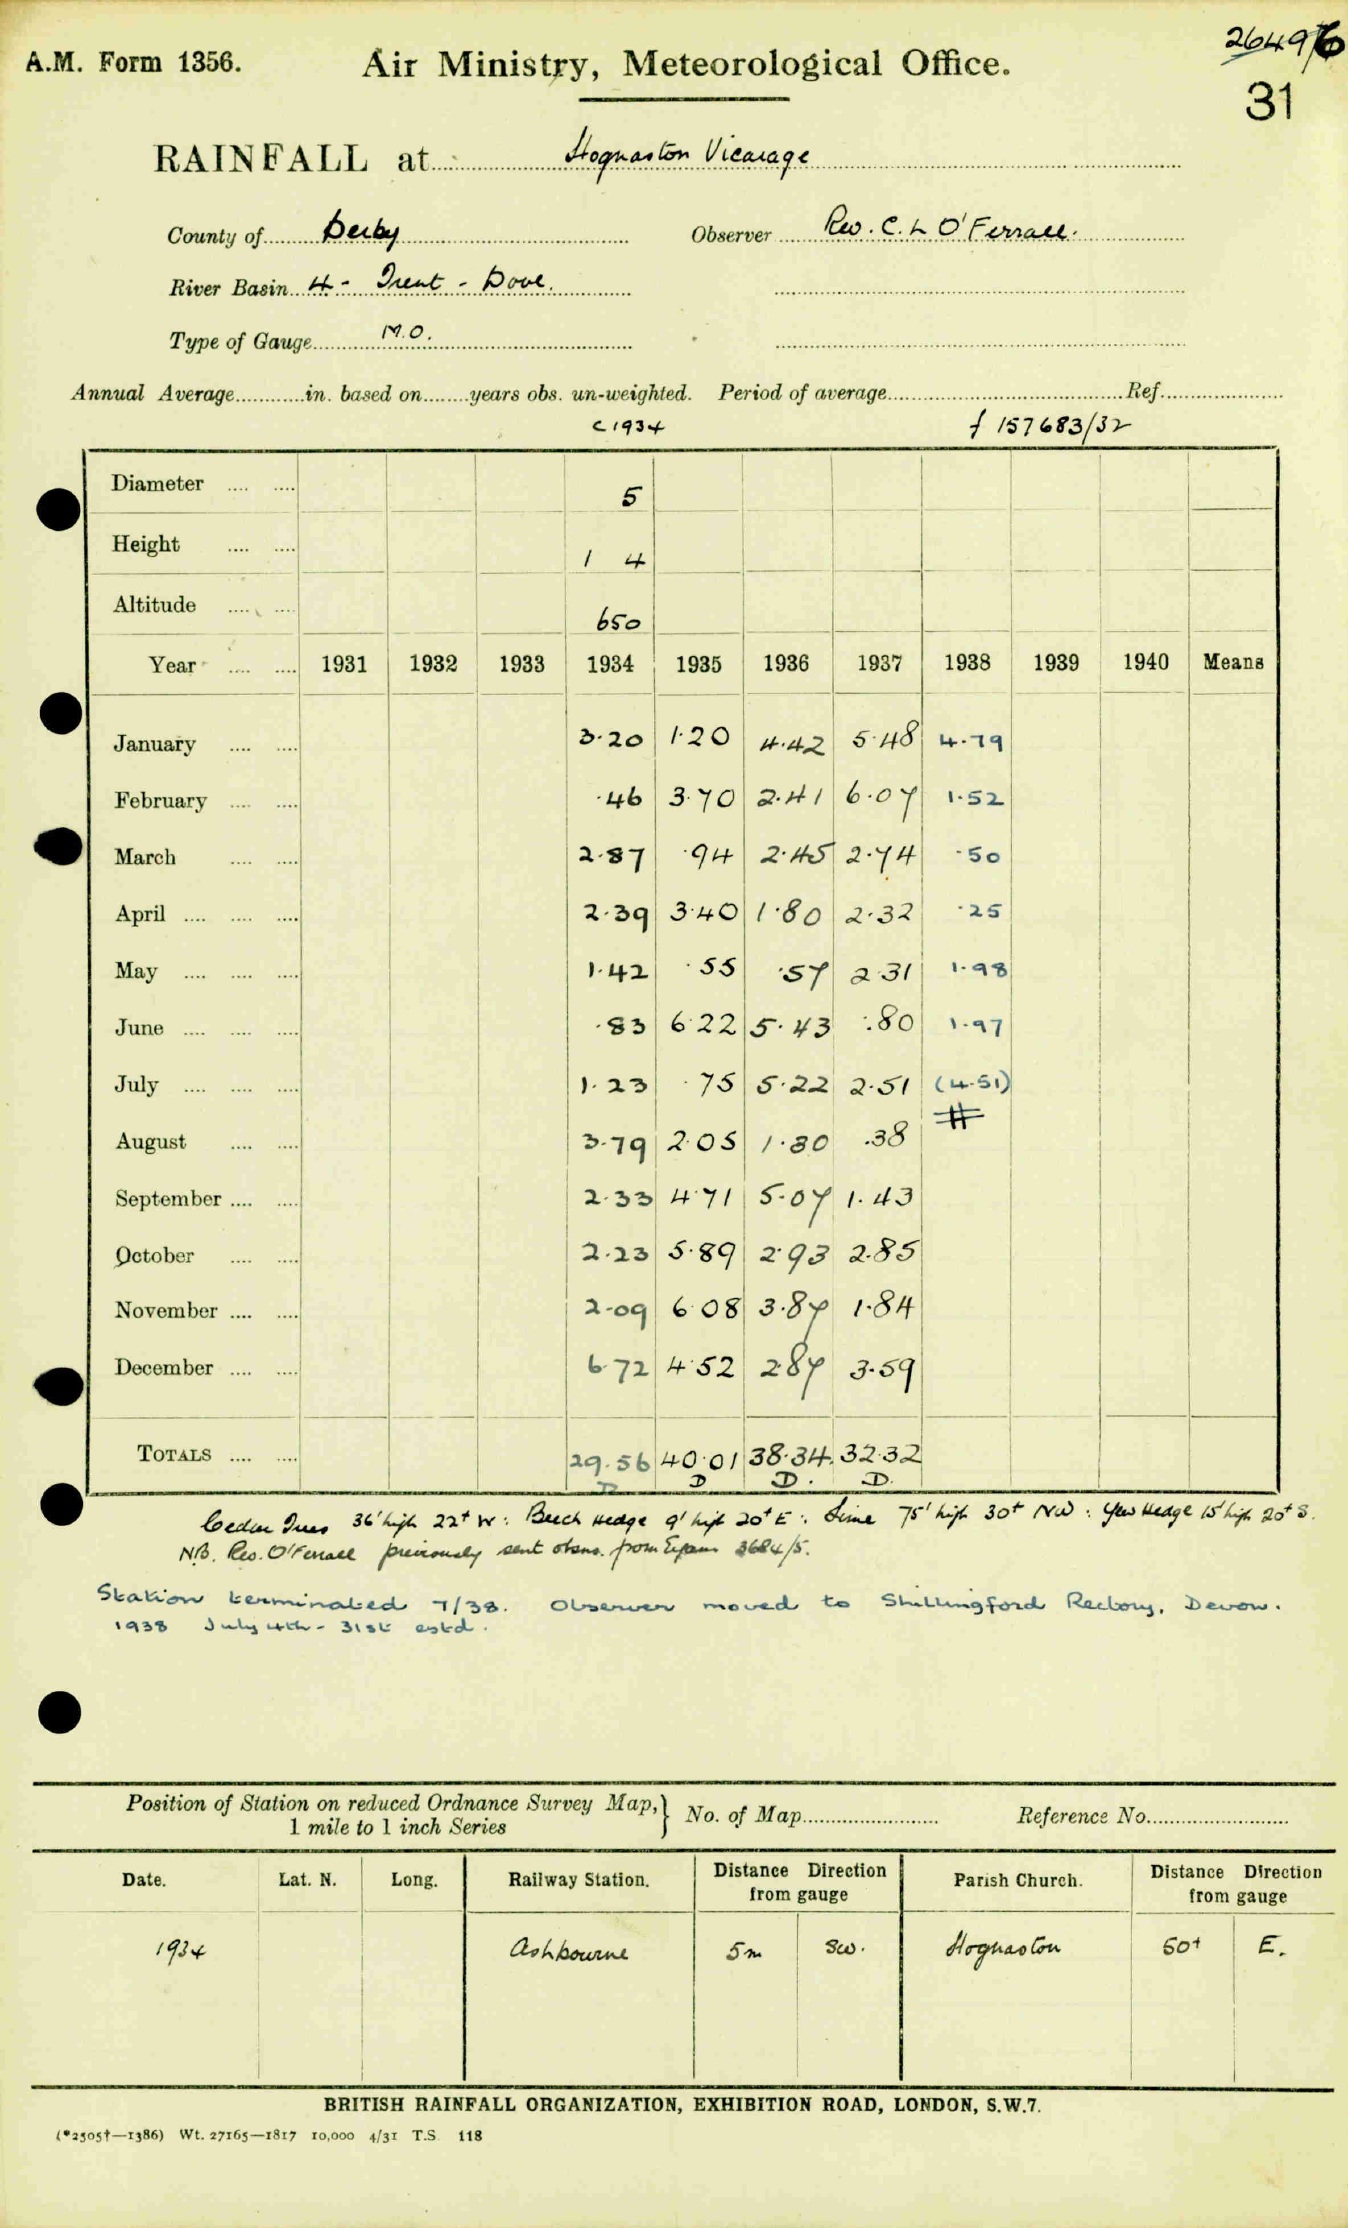 26496
A.M. Form 1356. Air Ministry, Meteorological Office.
31
RAINFALL at Hognaston Vicarage
County of Derby Observer Rev. C. L O'Ferrall.
River Basin 4 - Trent - Dove.
Type of Gauge M.O.
Annual Average in. based on years obs. un-weighted. Period of average Ref.
c 1934 f 157683/32
Diameter 5
Height 1 4
Altitude 650
Year 1931 1932 1933 1934 1935 1936 1937 1938 1939 1940 Means
January 3.20 1.20 4.42 5.48 4.79
February .46 3.70 2.41 6.07 1.52
March 2.87 .94 2.45 2.74 .50
April 2.39 3.40 1.80 2.32 .25
May 1.42 .55 .57 2.31 1.98
June .83 6.22 5.43 .80 1.97
July 1.23 .75 5.22 2.51 (4.51)
August 3.79 2.05 1.30 .38
September 2.33 4.71 5.07 1.43
October 2.23 5.89 2.93 2.85
November 2.09 6.08 3.87 1.84
December 6.72 4.52 2.87 3.59
TOTALS 29.56 40.01 38.34 32.32
D D D. D.
Cedar Trees 36' high 22+ W: Beech Hedge 9' high 20+ E: Lime 75' high 30+ NW: Yew Hedge 15' high 20+ S.
NB. Rev. O'Ferrall previously sent obsns. from Eyam 3684/5.
Station terminated 7/38. Observer moved to Shillingford Rectory, Devon.
1938 July 4th - 31st estd.
Position of Station on reduced Ordnance Survey Map, 1 mile to 1 inch Series } No. of Map Reference No.
Date. Lat. N. Long. Railway Station. Distance Direction from gauge Parish Church. Distance Direction from gauge
1934 Ashbourne 5m SW. Hognaston 50+ E.
BRITISH RAINFALL ORGANIZATION, EXHIBITION ROAD, LONDON, S.W.7.
(*2505†—1386) Wt. 27165—1817 10,000 4/31 T.S. 118